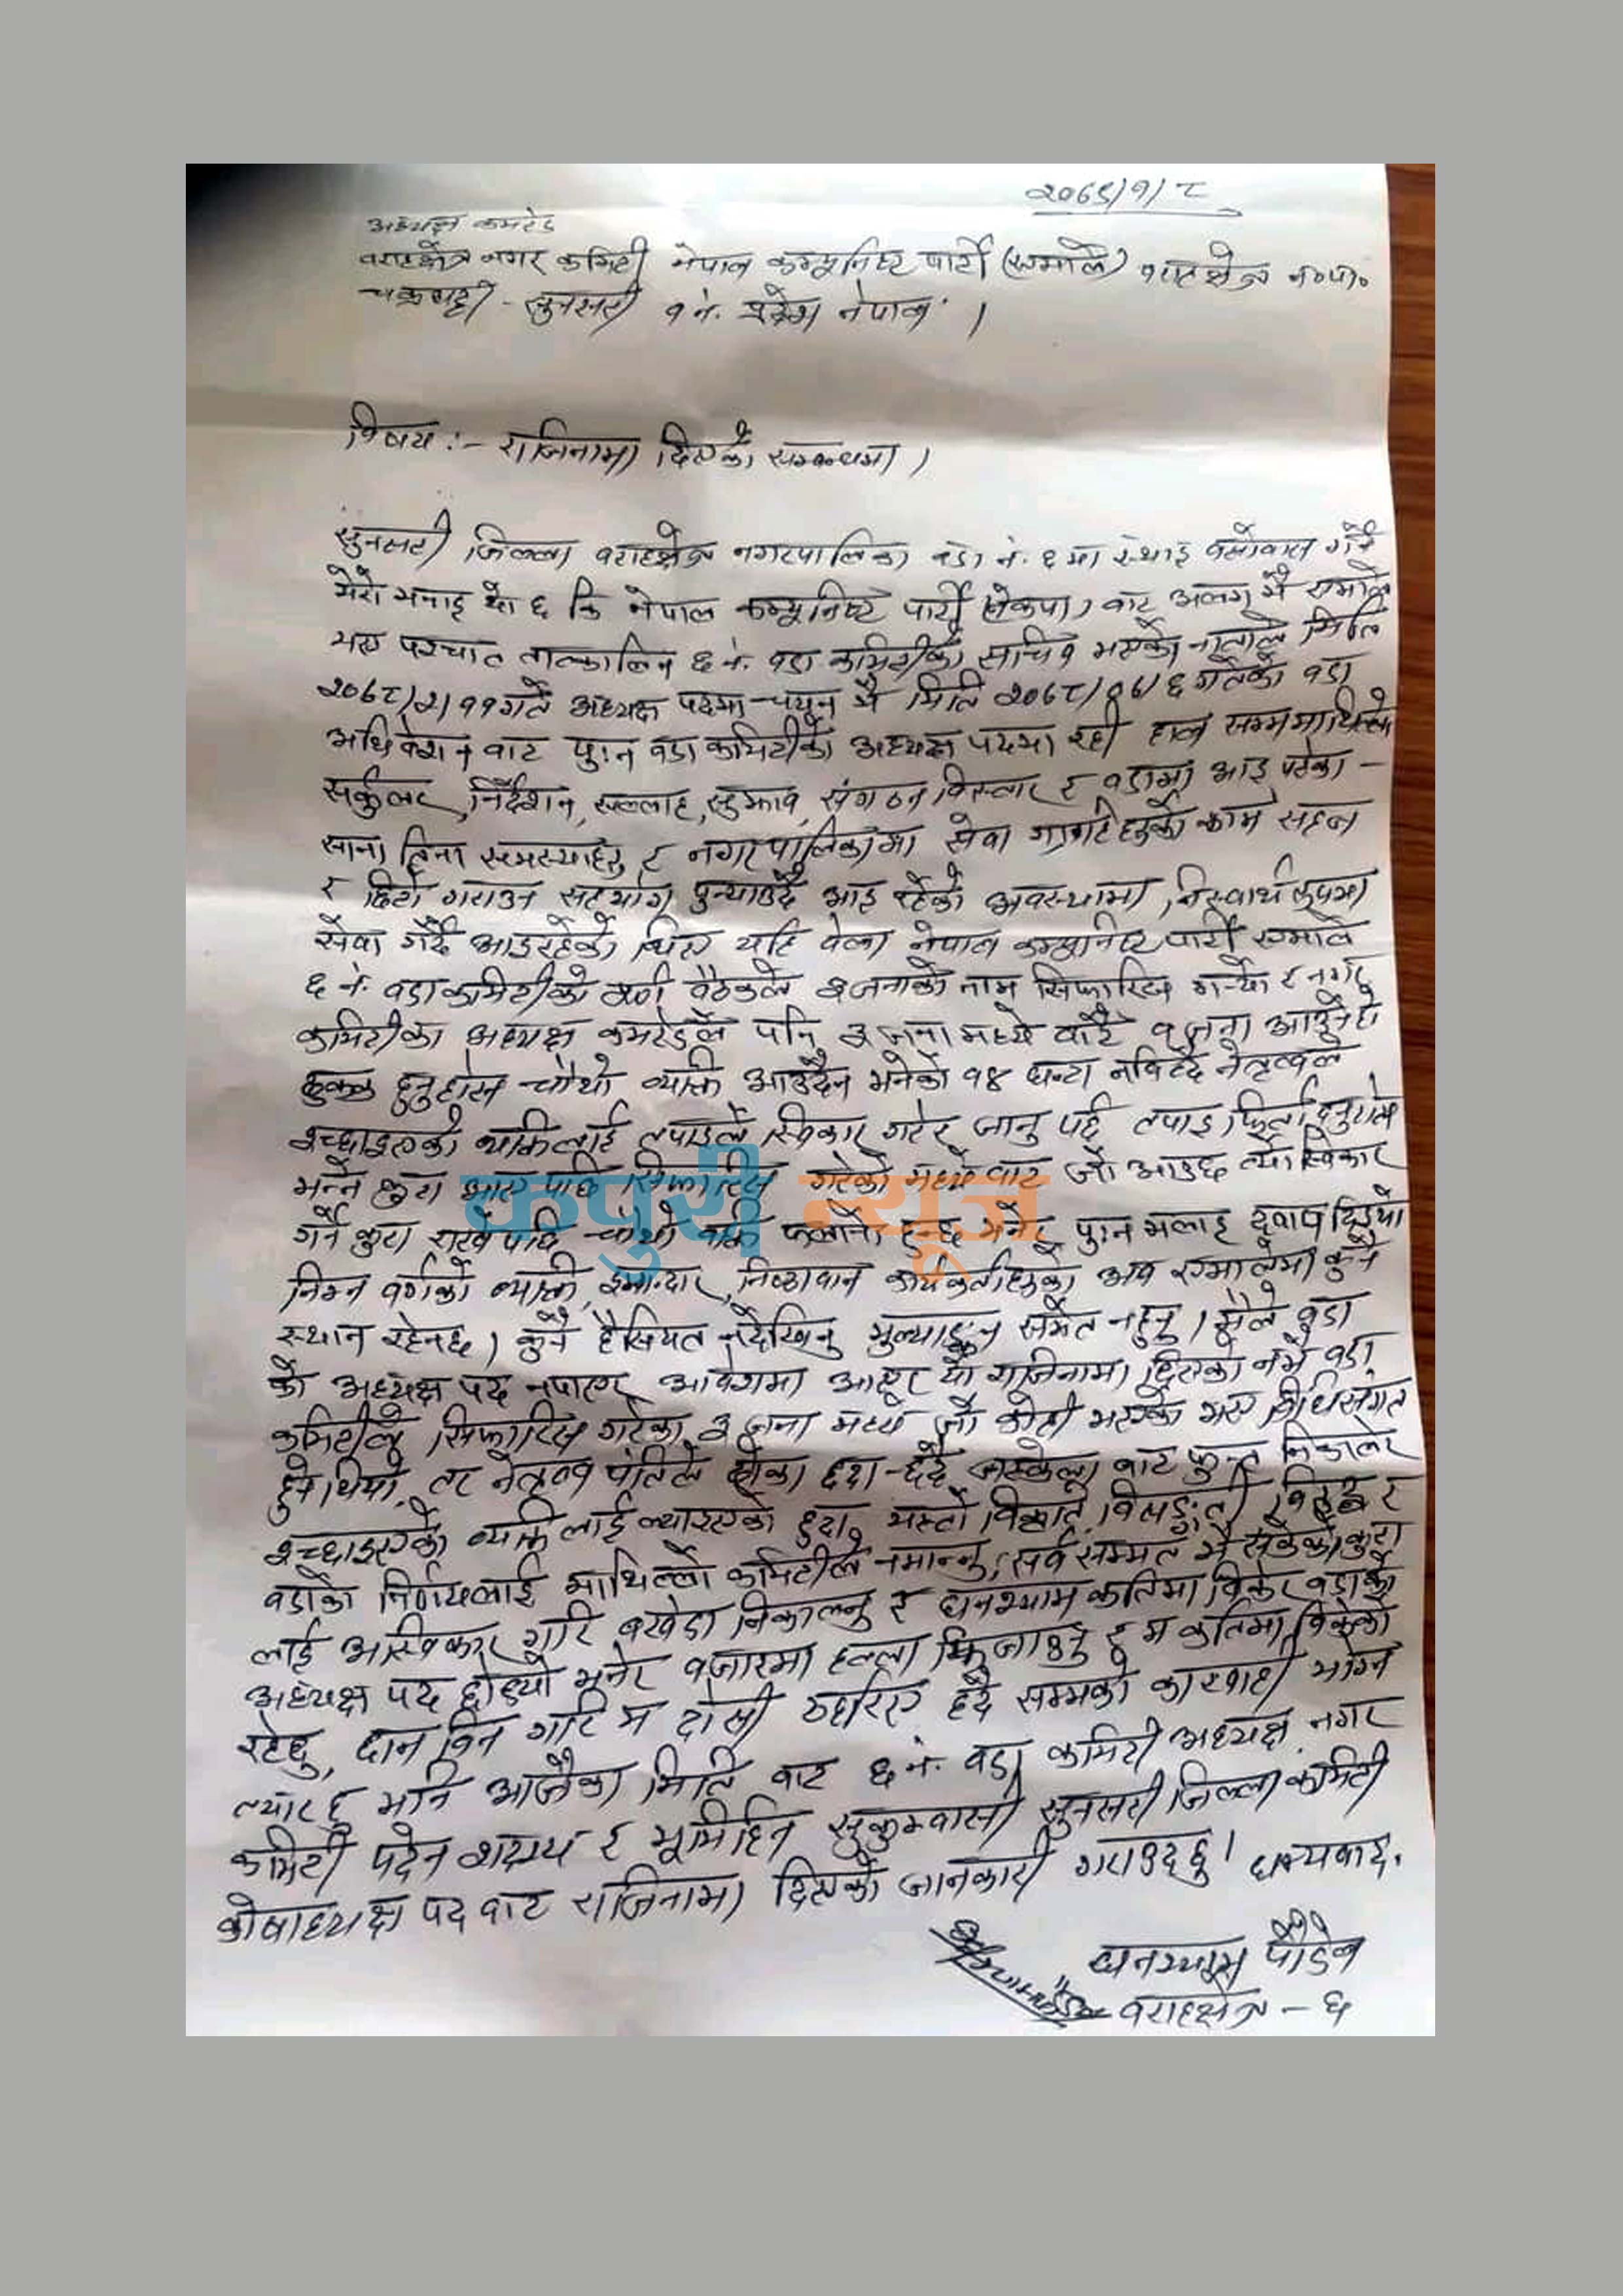 २०७९/१/८
अध्यक्ष कमरेड
वराहक्षेत्र नगर कमिटी नेपाल कम्यूनिष्ट पार्टी (एमाले) वराहक्षेत्र न०पा०
चक्रघट्टी - सुनसरी १ नं. प्रदेश नेपाल ।
विषय :- राजिनामा दिएको सम्बन्धमा ।
सुनसरी जिल्ला वराहक्षेत्र नगरपालिका वडा नं. ६ मा स्थाइ वसोवास गर्ने
मेरो भनाइ यो छ कि नेपाल कम्यूनिष्ट पार्टी (नेकपा) वाट अलग भै एमाले
भए पश्चात तात्कालिन ६ नं. वडा कमिटीको सचिव भएको नाताले मिति
२०७८/२/११ गते अध्यक्ष पदमा चयन भै मिति २०७८/०६/६ गतेको वडा
अधिवेशन वाट पुःन वडा कमिटीको अध्यक्ष पदमा रही हाल सम्म माथिल्लो
सर्कुलर, निर्देशन, सल्लाह, सुझाव, संगठन विस्तार र वडामा आइ परेका -
साना तिना समस्याहरु र नगरपालिकामा सेवा ग्राहीहरुको काम सहज
र छिटो गराउन सहयोग पुर्‍याउदै आइ रहेको अवस्थामा, निस्वार्थ रूपमा
सेवा गर्दै आइरहेको थिए यहि वेला नेपाल कम्यूनिष्ट पार्टी एमाले
६ नं. वडा कमिटीको वैठकले ३ जनाको नाम सिफारिस गर्‍यो र नगर
कमिटीका अध्यक्ष कमरेडले पनि ३ जना मध्ये वाटै १ जना आउने हो
ढुक्क हुनुहोस चौथो व्यक्ति आउदैन भनेको १४ घन्टा नवित्दै नेतृत्वले
इच्छाइएको व्यक्तिलाई तपाइले स्विकार गरेर जानु पर्छ तपाइ फिर्ता हुनुहोस
भन्ने कुरा आए पछि सिफारिस गरेको मध्ये वाट जो आउछ त्यो स्विकार
गर्ने कुरा राखे पछि चौथो व्यक्ति फलानो हुन्छ भनेर पुःन मलाइ दवाव दिइयो
निम्न वर्गको व्यक्ति, इमान्दार, निष्ठावान कार्यकर्ताहरुको अव एमालेमा कुनै
स्थान रहेनछ । कुनै हैसियत नदेखिनु मुल्याङ्कन समेत नहुनु । मैले वडा
को अध्यक्ष पद नपाएर आवेशमा आएर यो राजिनामा दिएको नभै वडा
कमिटीले सिफारिस गरेका ३ जना मध्ये जो कोही भएको भए विधिसंगत
हुने थियो, तर नेतृत्व पंतिले छँदा-छँदै वाट फुत्त निकालेर
इच्छाइएको व्यक्तिलाई ल्याइएको हुदा, यस्तो विकृति, विसङ्गती, विरुद्ध र
वडाको निर्णयलाई माथिल्लो कमिटीले नमान्नु, सर्व सम्मत भै सकेको कुरा
लाई अस्विकार गरि वखेडा निकाल्नु र घनश्याम कतिमा विकेर वडाको
अध्यक्ष पद छोड्यो भनेर वजारमा हल्ला फिजाउनु र म कतिमा विकेको
रहेछु, छान विन गरि म दोसी ठहरिए हदै सम्मको कारवाही भोग्न
तयार छु भनि आजैका मिति वाट ६ नं. वडा कमिटी अध्यक्ष, नगर
कमिटी पदेन सदस्य र भूमिहिन सुकुम्वासी सुनसरी जिल्ला कमिटी
कोषाध्यक्ष पद वाट राजिनामा दिएको जानकारी गराउदछु । धन्यवाद.
घनश्याम पौडेल
वराहक्षेत्र - ६
कपुरी न्यूज